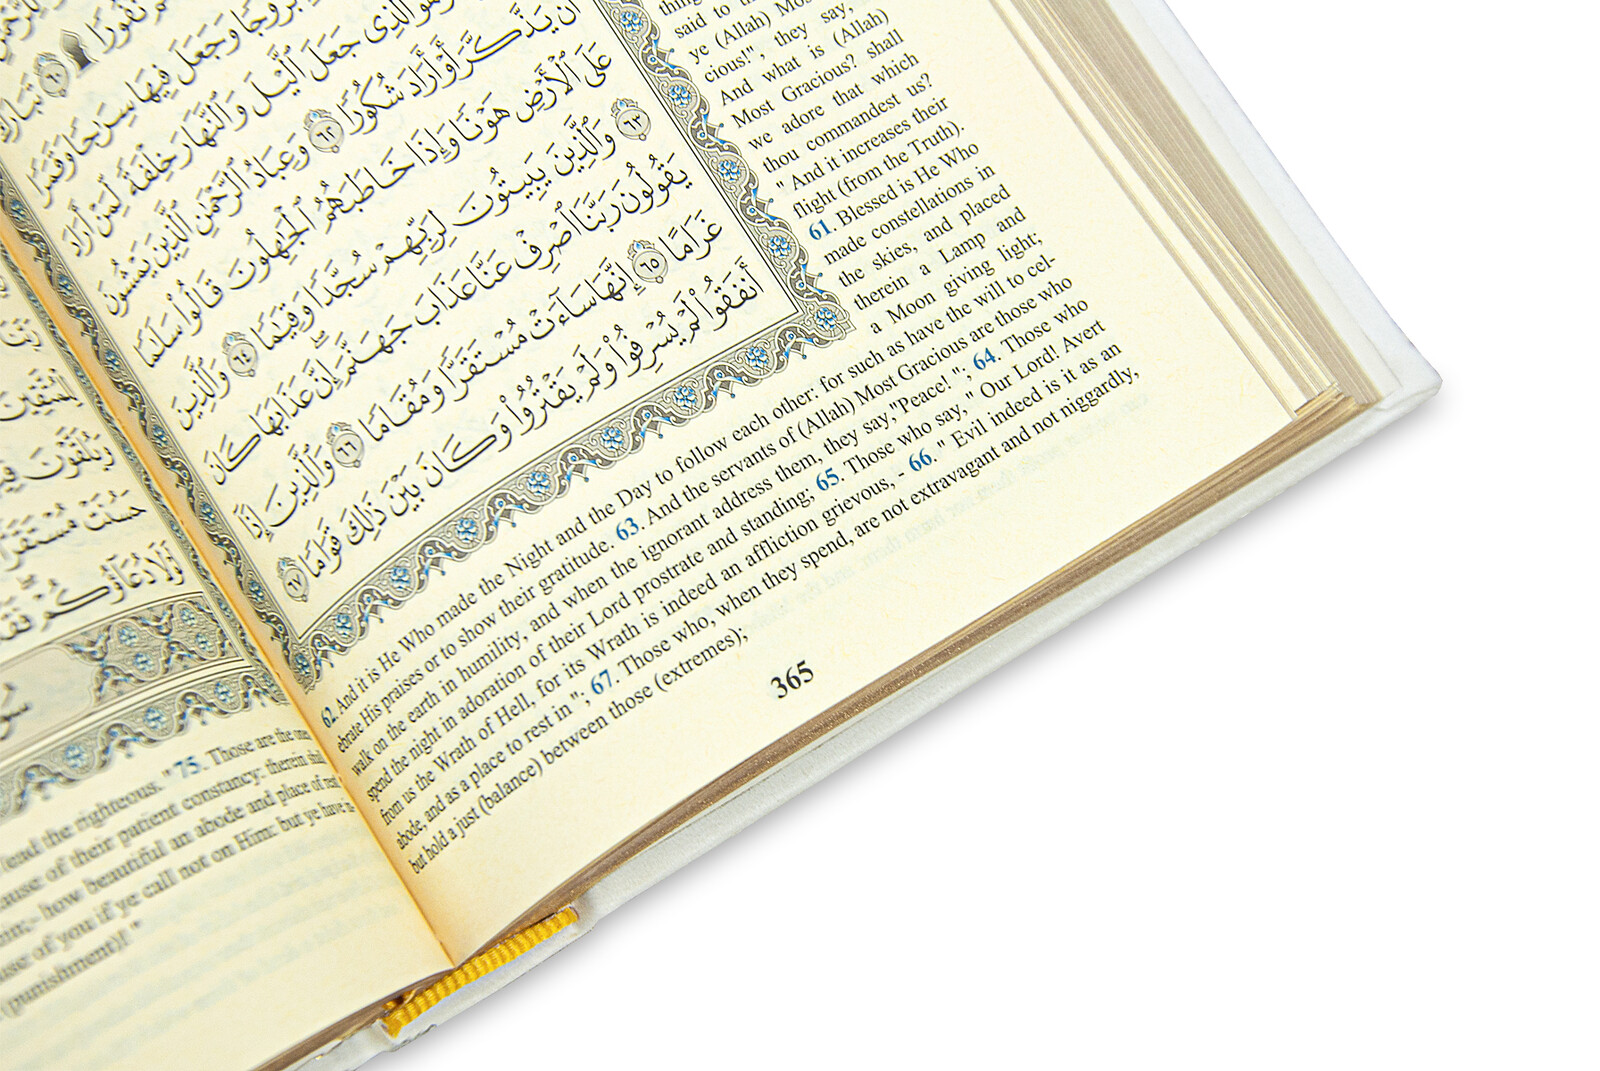 نُفُورًا ۩ ٦٠ تَبَارَكَ
بُرُوجًا وَجَعَلَ فِيهَا سِرَٰجًا وَقَمَرًا
وَهُوَ ٱلَّذِى جَعَلَ ٱلَّيْلَ وَٱلنَّهَارَ خِلْفَةً لِّمَنْ أَرَادَ
أَن يَذَّكَّرَ أَوْ أَرَادَ شُكُورًا ٦٢ وَعِبَادُ ٱلرَّحْمَٰنِ ٱلَّذِينَ يَمْشُونَ
عَلَى ٱلْأَرْضِ هَوْنًا وَإِذَا خَاطَبَهُمُ ٱلْجَٰهِلُونَ قَالُوا۟ سَلَٰمًا
٦٣ وَٱلَّذِينَ يَبِيتُونَ لِرَبِّهِمْ سُجَّدًا وَقِيَٰمًا ٦٤ وَٱلَّذِينَ
يَقُولُونَ رَبَّنَا ٱصْرِفْ عَنَّا عَذَابَ جَهَنَّمَ إِنَّ عَذَابَهَا كَانَ
غَرَامًا ٦٥ إِنَّهَا سَآءَتْ مُسْتَقَرًّا وَمُقَامًا ٦٦ وَٱلَّذِينَ إِذَآ
أَنفَقُوا۟ لَمْ يُسْرِفُوا۟ وَلَمْ يَقْتُرُوا۟ وَكَانَ بَيْنَ ذَٰلِكَ قَوَامًا ٦٧
said to
ye (Allah) Mos
cious!", they say,
And what is (Allah)
Most Gracious? shall
we adore that which
thou commandest us?
" And it increases their
flight (from the Truth).
61. Blessed is He Who
made constellations in
the skies, and placed
therein a Lamp and
a Moon giving light;
62. And it is He Who made the Night and the Day to follow each other: for such as have the will to cel-
ebrate His praises or to show their gratitude. 63. And the servants of (Allah) Most Gracious are those who
walk on the earth in humility, and when the ignorant address them, they say,"Peace! "; 64. Those who
spend the night in adoration of their Lord prostrate and standing; 65. Those who say, " Our Lord! Avert
from us the Wrath of Hell, for its Wrath is indeed an affliction grievous, - 66. " Evil indeed is it as an
abode, and as a place to rest in "; 67. Those who, when they spend, are not extravagant and not niggardly,
but hold a just (balance) between those (extremes);
365
وَيُلَقَّوْنَ
حَسُنَتْ مُسْتَقَرًّا
لَوْلَا دُعَآؤُكُمْ فَقَدْ
lead the righteous. " 75. Those are the ones
ause of their patient constancy: therein shall
how beautiful an abode and place of rest
use of you if ye call not on Him: but ye have in-
(punishment)! "